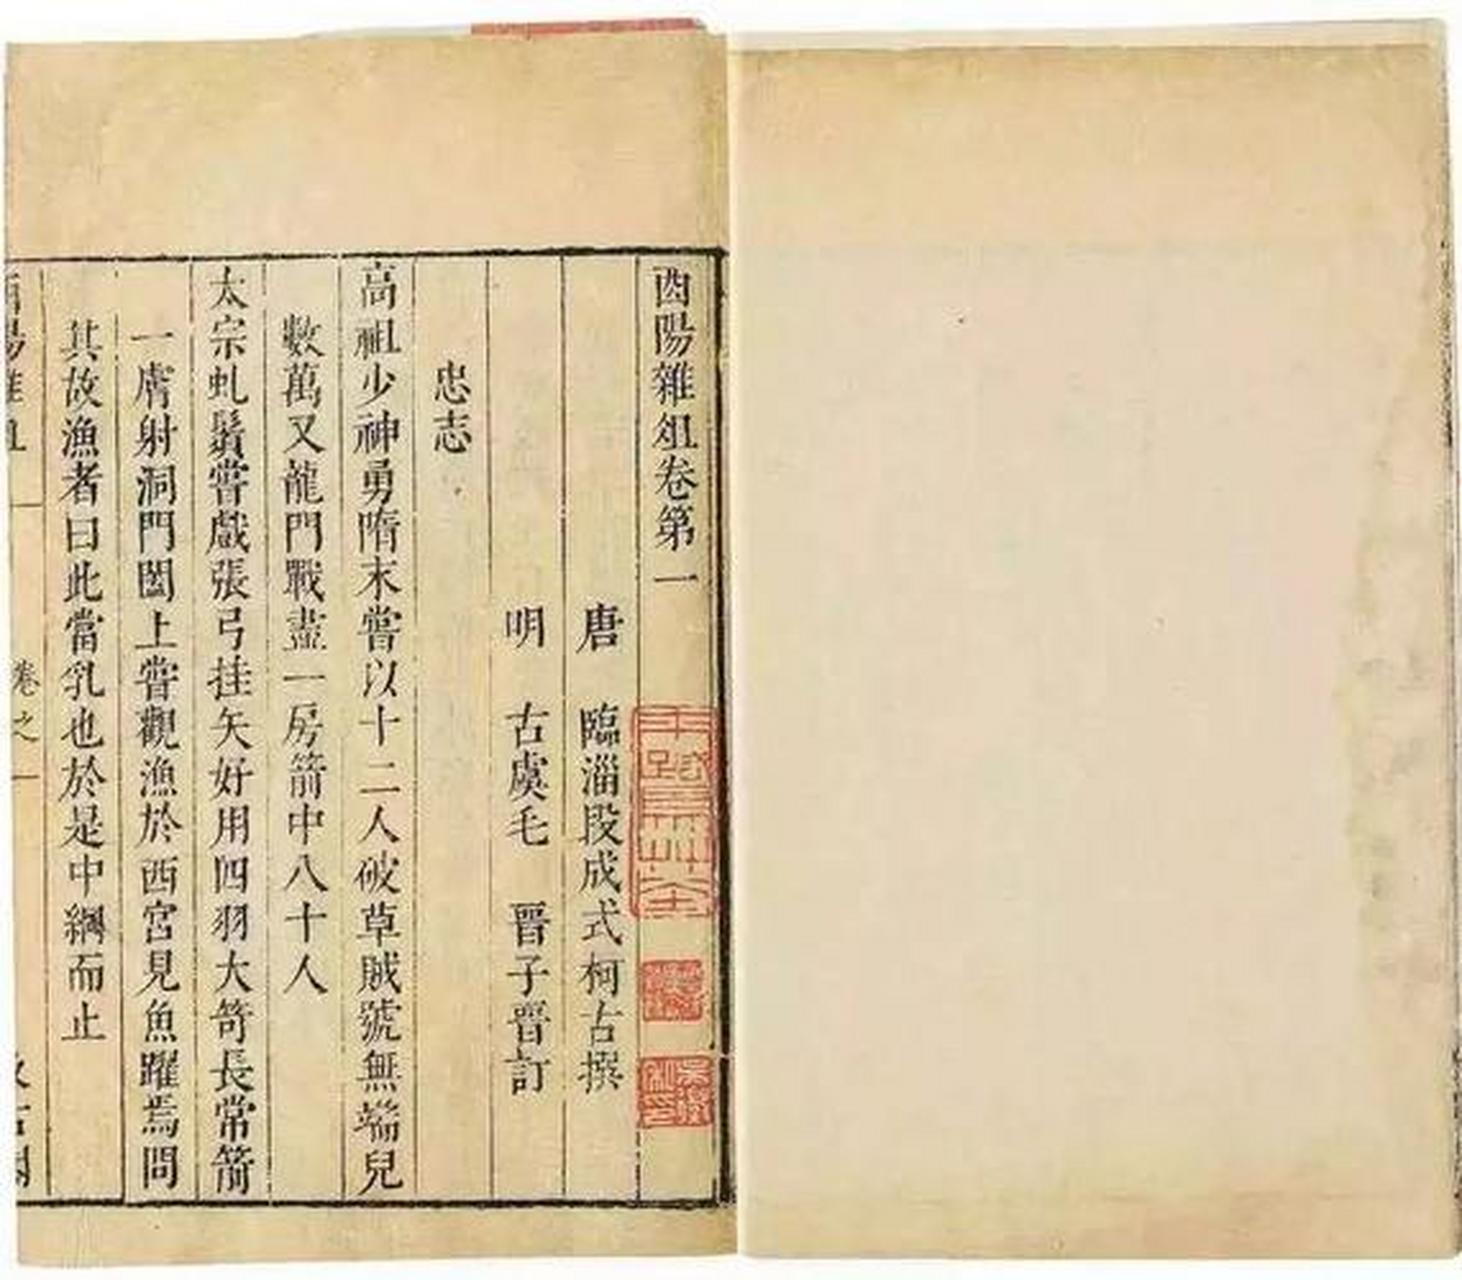 酉陽雜俎卷第一
唐 臨淄段成式柯古撰
明 古虞毛 晉子晉訂
忠志
高祖少神勇隋末嘗以十二人破草賊號無端兒
數萬又龍門戰盡一房箭中八十人
太宗虬鬚嘗戲張弓挂矢好用四羽大笴長常箭
一膚射洞門闔上嘗觀漁於西宮見魚躍焉問
其故漁者曰此當乳也於是中網而止
酉陽雜俎
卷之一